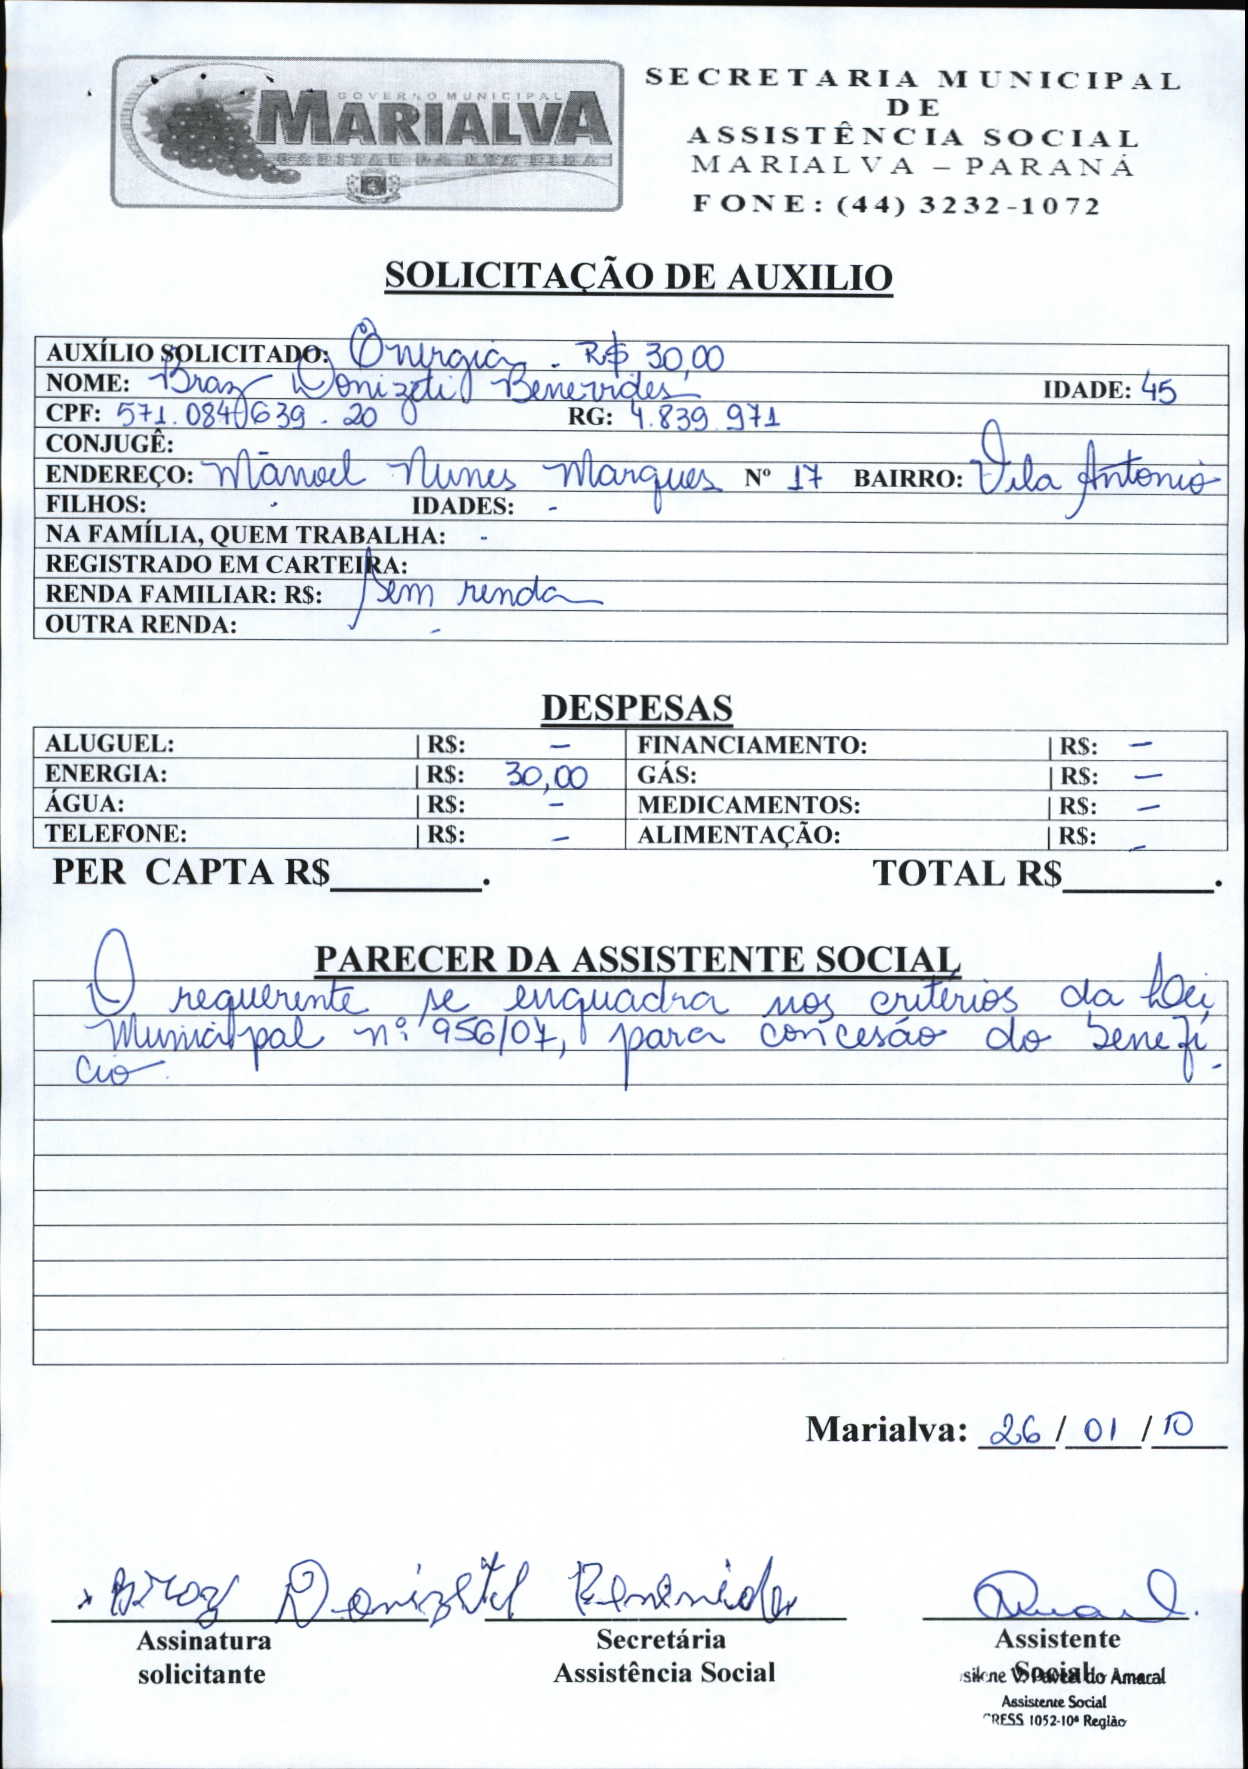 GOVERNO MUNICIPAL
MARIALVA
CAPITAL DA UVA FINA
SECRETARIA MUNICIPAL
DE
ASSISTÊNCIA SOCIAL
MARIALVA – PARANÁ
FONE: (44) 3232-1072
SOLICITAÇÃO DE AUXILIO
AUXÍLIO SOLICITADO: Energia - R$ 30,00
NOME: Braz Donizeti Benevides IDADE: 45
CPF: 571.084 639 - 20 RG: 4.839.971
CONJUGÊ:
ENDEREÇO: Manoel Nunes Marques Nº 17 BAIRRO: Vila Antonio
FILHOS: - IDADES: -
NA FAMÍLIA, QUEM TRABALHA: -
REGISTRADO EM CARTEIRA:
RENDA FAMILIAR: R$: sem renda
OUTRA RENDA: -
DESPESAS
ALUGUEL: | R$: – FINANCIAMENTO: | R$: –
ENERGIA: | R$: 30,00 GÁS: | R$: –
ÁGUA: | R$: – MEDICAMENTOS: | R$: –
TELEFONE: | R$: – ALIMENTAÇÃO: | R$: –
PER CAPTA R$________. TOTAL R$________.
PARECER DA ASSISTENTE SOCIAL
O requerente se enquadra nos critérios da Lei
Municipal nº 956/07, para concesão do benefí-
cio.
Marialva: 26 / 01 / 10
x Braz Donizetil Benenides
Assinatura Secretária Assistente
solicitante Assistência Social Social
do Amaral
Assistente Social
CRESS 1052-10ª Região